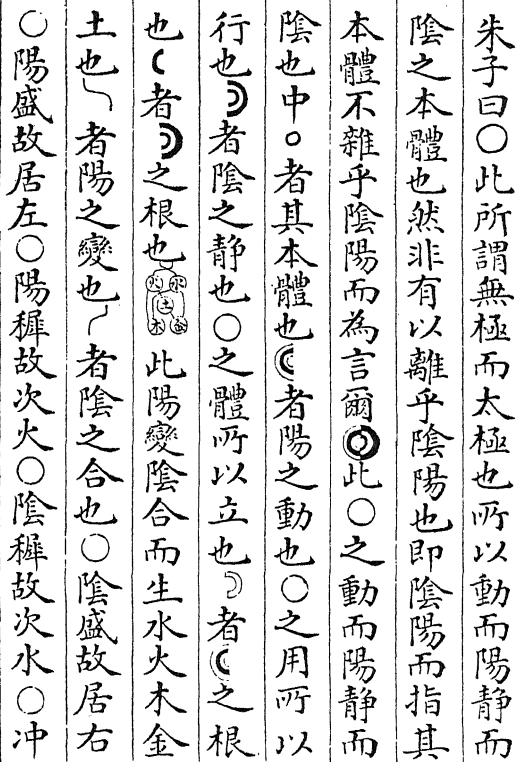 朱子曰○此所謂無極而太極也所以動而陽静而
陰之本體也然非有以離乎陰陽也即陰陽而指其
本體不雜乎陰陽而為言爾◎此○之動而陽静而
陰也中○者其本體也☾者陽之動也○之用所以
行也☽者陰之静也○之體所以立也☽者☾之根
也☾者☽之根也水火土木金此陽變陰合而生水火木金
土也㇏者陽之變也㇒者陰之合也○陰盛故居右
○陽盛故居左○陽穉故次火○陰穉故次水○冲